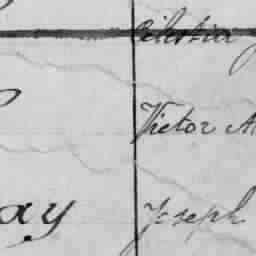 Celestia
Victor A
ay Joseph